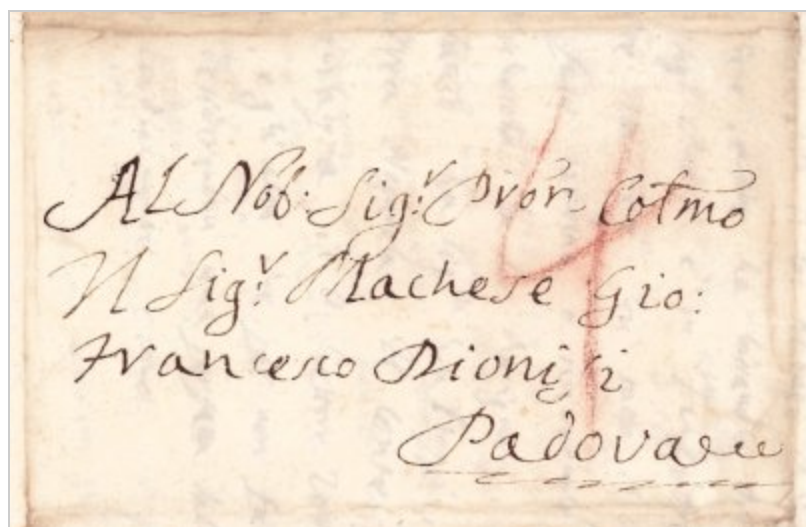 Al Nob: Sig.r Pron Colmo
Il Sig.r Machese Gio:
Francesco Dionisi
4
Padova